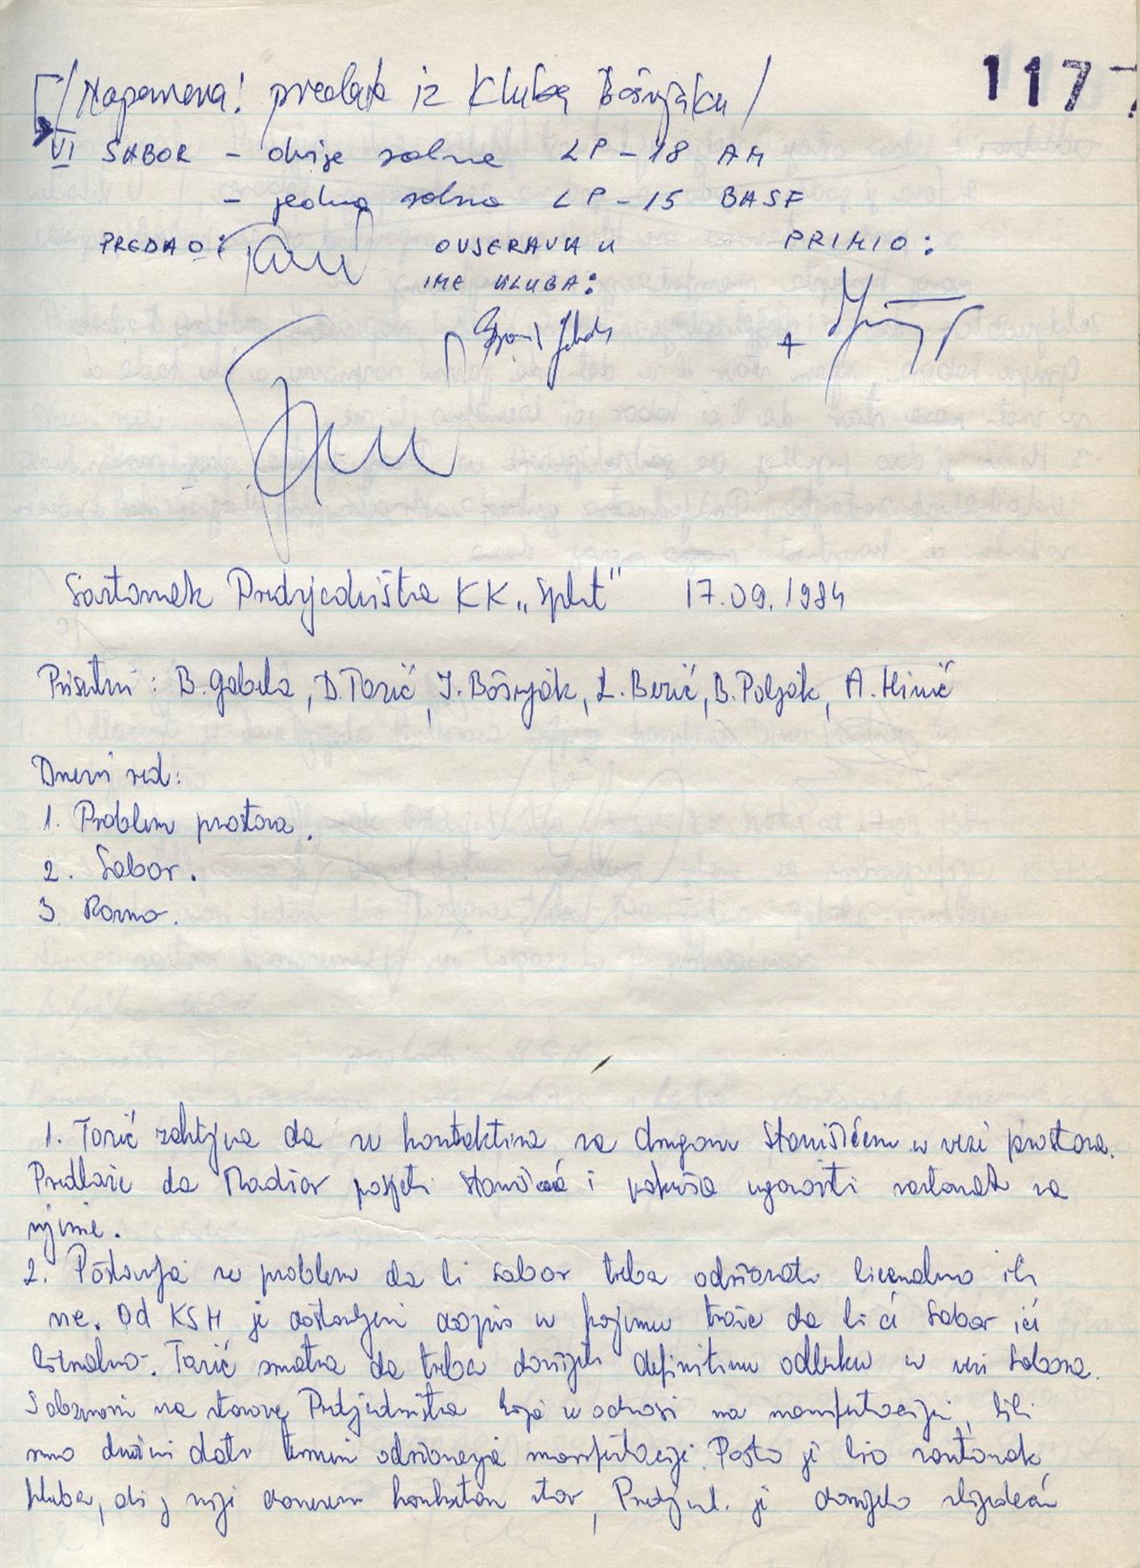 117
/Napomena! predaja iz Kluba Bošnjaku/
VI SABOR - dvije rolne LP-18 AM
- jedna rolna LP-15 BASF
PREDAO: OVJERAVA U PRIMIO:
IME KLUBA:
Sastanak Predsjedništva KK „Split" 17.09.1984
Prisutni: B. Gabela, D. Tazić, J. Bošnjak, L. Berić, B. Poljak, A. Mimić
Dnevni red:
1. Problem prostora.
2. Sabor.
3. Razno.
1. Tazić zahtjeva da se kontaktira sa drugom Stanišićem u vezi prostora.
Predlaže da Madžar posjeti Stanišića i pokuša ugovoriti sastanak sa
njime.
2. Postavlja se problem da li Sabor treba održavati bienalno ili
ne. Od KSH je dostavljen dopis u kojemu traže da li će Sabor ići
bienalno. Tazić smatra da treba donijeti definitivnu odluku u vezi Sabora.
S obzirom na stavove Predsjedništva koja se odnosi na manifestacije, bili
smo dužni dati termin održavanja manifestacije. Pošto je bio sastanak
kluba, ali j nije donesen konkretan stav, Predsjed. je donijelo slijedeći